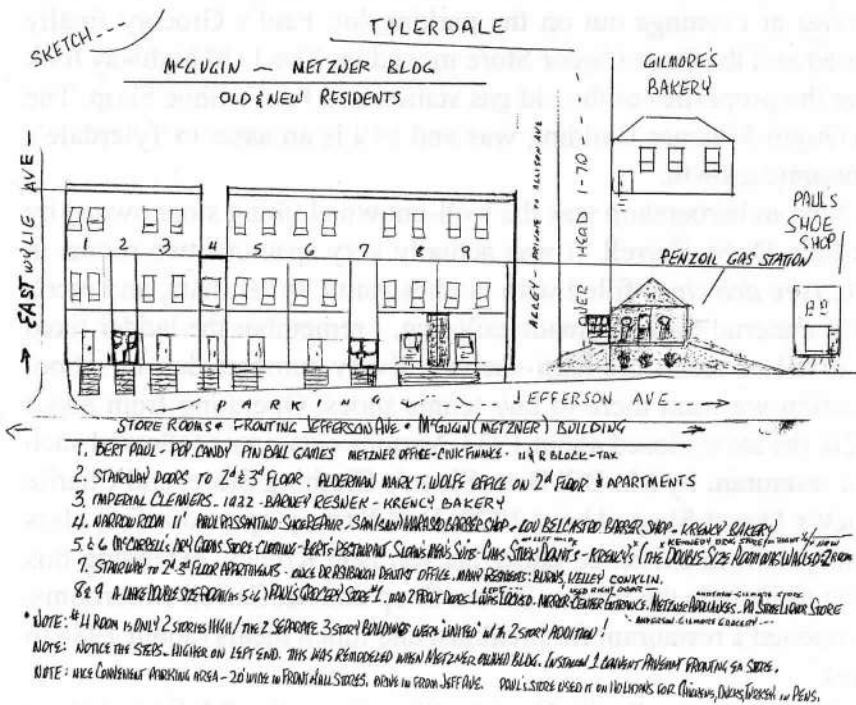 SKETCH
TYLERDALE
McGUGIN - METZNER BLDG.
OLD & NEW RESIDENTS
GILMORE'S
BAKERY
PAUL'S
SHOE
SHOP
PENZOIL GAS STATION
12 ST
EAST WYLIE AVE
ALLEY - PARALLEL TO ALLISON AVE
OVER HEAD I-70
2 3 4 5 6 7 8 9
PARKING
JEFFERSON AVE
STORE ROOMS & FRONTING JEFFERSON AVE McGUGIN (METZNER) BUILDING
1. BERT PAUL - POP. CANDY PIN BALL GAMES METZNER OFFICE - CIVIC FINANCE - H & R BLOCK - TAX
2. STAIRWAY DOORS TO 2d & 3d FLOOR - ALDERMAN MARK T. WOLFE OFFICE ON 2d FLOOR & APARTMENTS
3. IMPERIAL CLEANERS - 1932 - BARNEY RESNEK - KRENCY BAKERY
4. NARROW ROOM 11' PAUL PASSANTINO SHOE REPAIR - BARBER SHOP - LOU BELCASTRO BARBER SHOP - KRENCY BAKERY
KENNEDY DRUG STORE
5 & 6 DRY GOODS STORE CLOTHING - BERT'S RESTAURANT, MEN'S DONUTS - KRENCY'S (THE DOUBLE SIZE ROOM
7. STAIRWAY TO 2d 3d FLOOR APARTMENTS - ONCE DR. DENTIST OFFICE. MANY RESIDENTS: BURNS, KELLEY CONKLIN.
USED RIGHT
ANDERSON-GILMORE STORE
8 & 9 A LARGE DOUBLE SIZE ROOM (AS 5 & 6) PAUL'S GROCERY STORE #1. HAD 2 FRONT DOORS 1 WAS LOCKED. CENTER ENTRANCE. METZNER APPLIANCES. PA STATE LIQUOR STORE
ANDERSON-GILMORE GROCERY
NOTE: #4 ROOM IS ONLY 2 STORIES HIGH / THE 2 SEPARATE 3 STORY BUILDINGS WERE 'UNITED' W/ A 2 STORY ADDITION!
NOTE: NOTICE THE STEPS - HIGHER ON LEFT END. THIS WAS REMODELED WHEN METZNER OWNED BLDG. 1 PAVEMENT FRONTING EA STORE.
NOTE: NICE CONVENIENT PARKING AREA - 20' WIDE IN FRONT ALL STORES, DRIVE IN FROM JEFF AVE. PAUL'S STORE USED IT ON HOLIDAYS FOR CHICKENS, DUCKS, TURKEYS IN PENS.